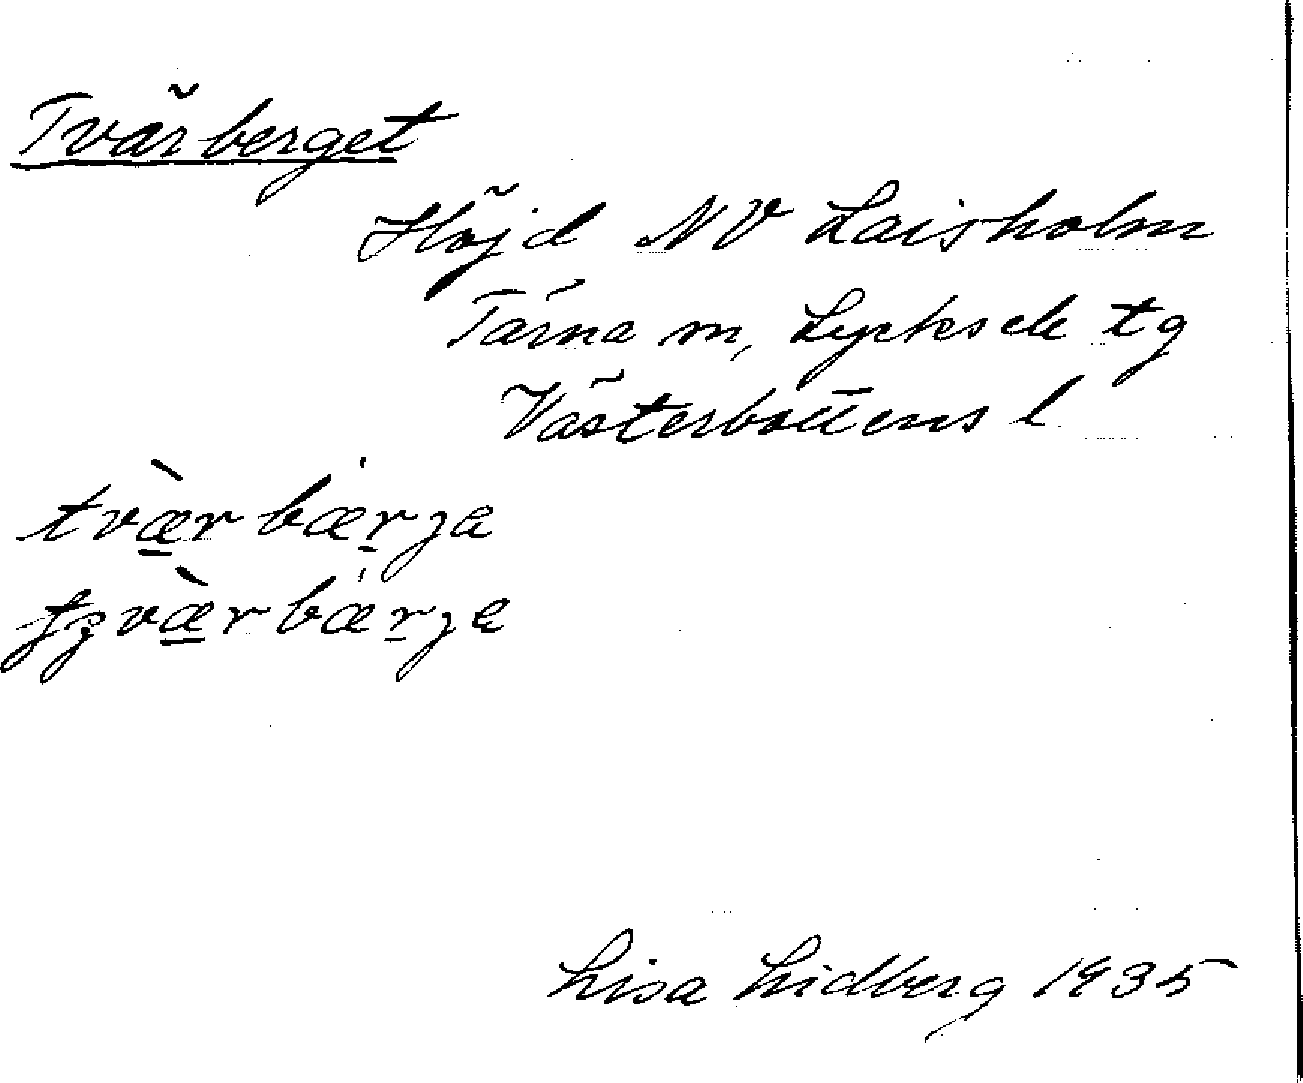 Tvärberget
Höjd NV Laisholm
Tärna m, Lycksele tg
Västerbottens l
tvæ̀rbærja
tʒvæ̀rbærja
Lisa Lidberg 1935